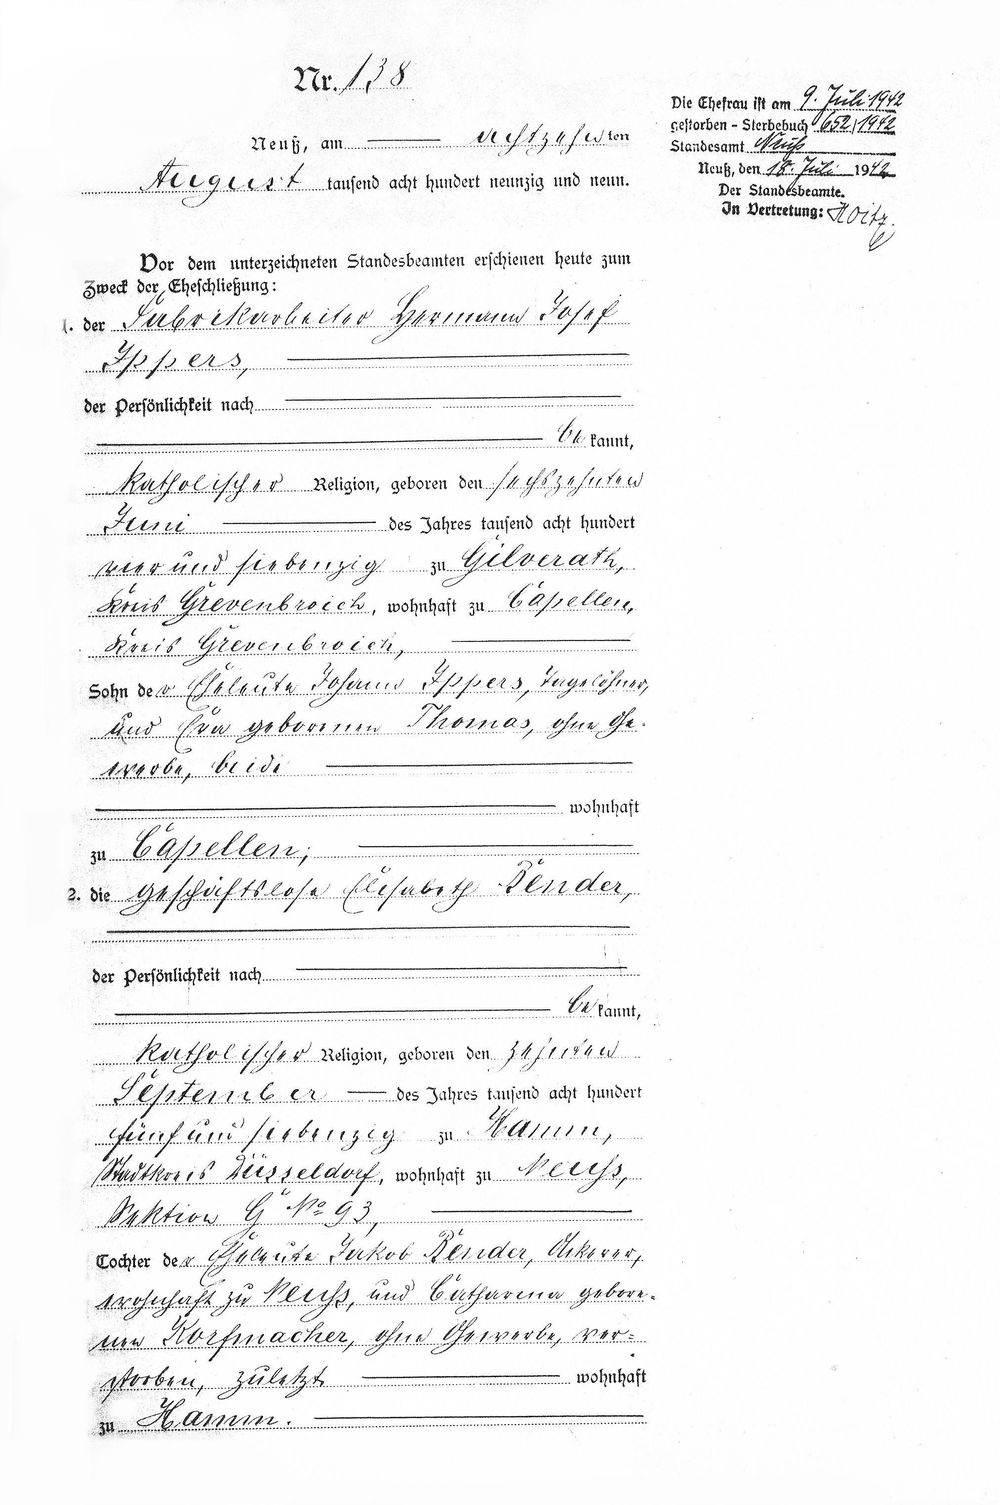 Nr. 138
Die Ehefrau ist am 9. Juli 1942
gestorben - Sterbebuch 652/1942
Standesamt Neuß
Neuß, den 18. Juli 1942
Der Standesbeamte.
In Vertretung:
Neuß, am achtzehnten
August tausend acht hundert neunzig und neun.
Vor dem unterzeichneten Standesbeamten erschienen heute zum
Zweck der Eheschließung:
1. der Fabrikarbeiter Hermann Josef
Ippers,
der Persönlichkeit nach
bekannt,
katholischer Religion, geboren den sechszehnten
Juni des Jahres tausend acht hundert
vier und siebenzig zu Gilverath,
Kreis Grevenbroich, wohnhaft zu Capellen,
Kreis Grevenbroich,
Sohn der Eheleute Johann Ippers, Tagelöhner,
und Eva geborenen Thomas, ohne Ge-
werbe, beide
wohnhaft
zu Capellen;
2. die geschäftslose Elisabeth Bender,
der Persönlichkeit nach
bekannt,
katholischer Religion, geboren den zehnten
September des Jahres tausend acht hundert
fünf und siebenzig zu Hamm,
Stadtkreis Düsseldorf, wohnhaft zu Neuss,
Sektion G No 93,
Tochter der Eheleute Jakob Bender, Ackerer,
wohnhaft zu Neuss, und Catharina gebore-
nen Korfmacher, ohne Gewerbe, ver-
storben, zuletzt wohnhaft
zu Hamm.